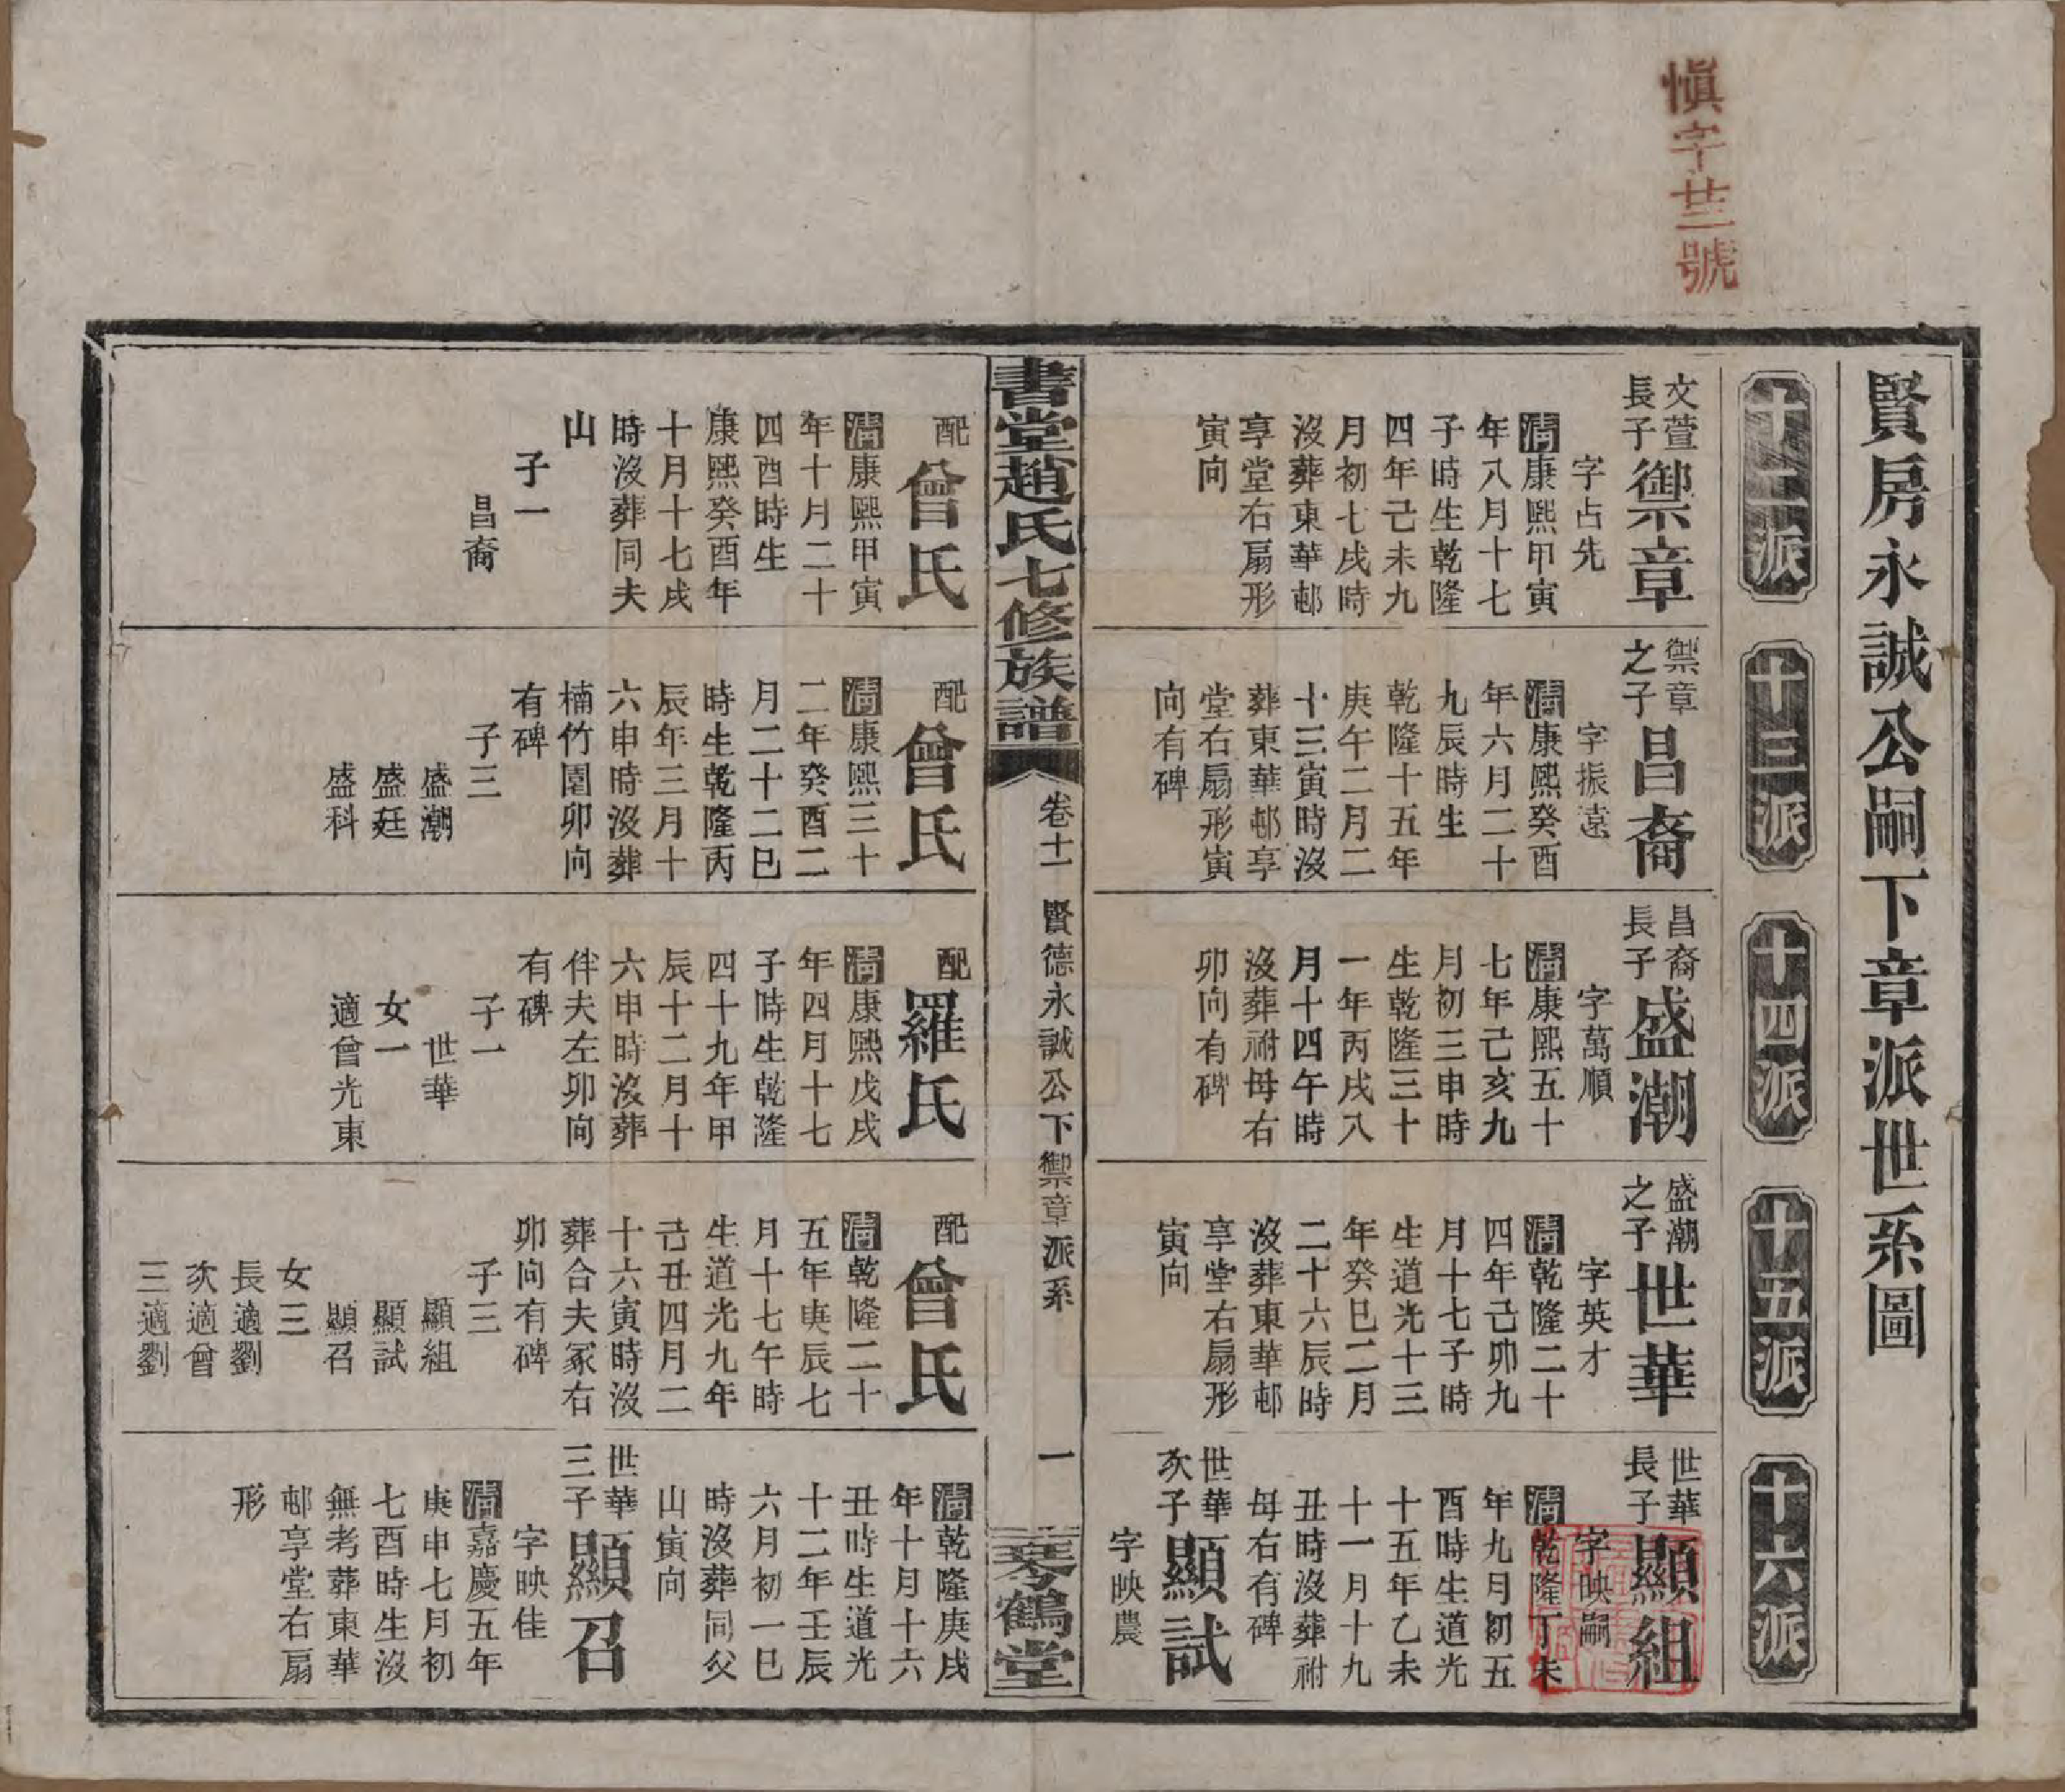 愼字廿三號
賢房永誠公嗣下章派世系圖
十二派
十三派
十四派
十五派
十六派
文萱
長子
禦章
字占先
清康熙甲寅
年八月十七
子時生乾隆
四年己未九
月初七戌時
沒葬東華邨
享堂右扇形
寅向
禦章
之子
昌裔
字振遠
清康熙癸酉
年六月二十
九辰時生
乾隆十五年
庚午二月二
十三寅時沒
葬東華邨享
堂右扇形寅
向有碑
昌裔
長子
盛潮
字萬順
清康熙五十
七年己亥九
月初三申時
生乾隆三十
一年丙戌八
月十四午時
沒葬祔母右
卯向有碑
盛潮
之子
世華
字英才
清乾隆二十
四年己卯九
月十七子時
生道光十三
年癸巳二月
二十六辰時
沒葬東華邨
享堂右扇形
寅向
世華
長子
顯組
字映嗣
清乾隆丁未
年九月初五
酉時生道光
十五年乙未
十一月十九
丑時沒葬祔
母右有碑
世華
次子
顯試
字映農
書堂趙氏七修族譜
卷十一
賢德永誠公下禦章派系
一
琴鶴堂
配
曾氏
清康熙甲寅
年十月二十
四酉時生
康熙癸酉年
十月十七戌
時沒葬同夫
山
子一
昌裔
配
曾氏
清康熙三十
二年癸酉二
月二十二巳
時生乾隆丙
辰年三月十
六申時沒葬
楠竹園卯向
有碑
子三
盛潮
盛廷
盛科
配
羅氏
清康熙戊戌
年四月十七
子時生乾隆
四十九年甲
辰十二月十
六申時沒葬
伴夫左卯向
有碑
子一
世華
女一
適曾光東
配
曾氏
清乾隆二十
五年庚辰七
月十七午時
生道光九年
己丑四月二
十六寅時沒
葬合夫冢右
卯向有碑
子三
顯組
顯試
顯召
女三
長適劉
次適曾
三適劉
清乾隆庚戌
年十月十六
丑時生道光
十二年壬辰
六月初一巳
時沒葬同父
山寅向
世華
三子
顯召
字映佳
清嘉慶五年
庚申七月初
七酉時生沒
無考葬東華
邨享堂右扇
形